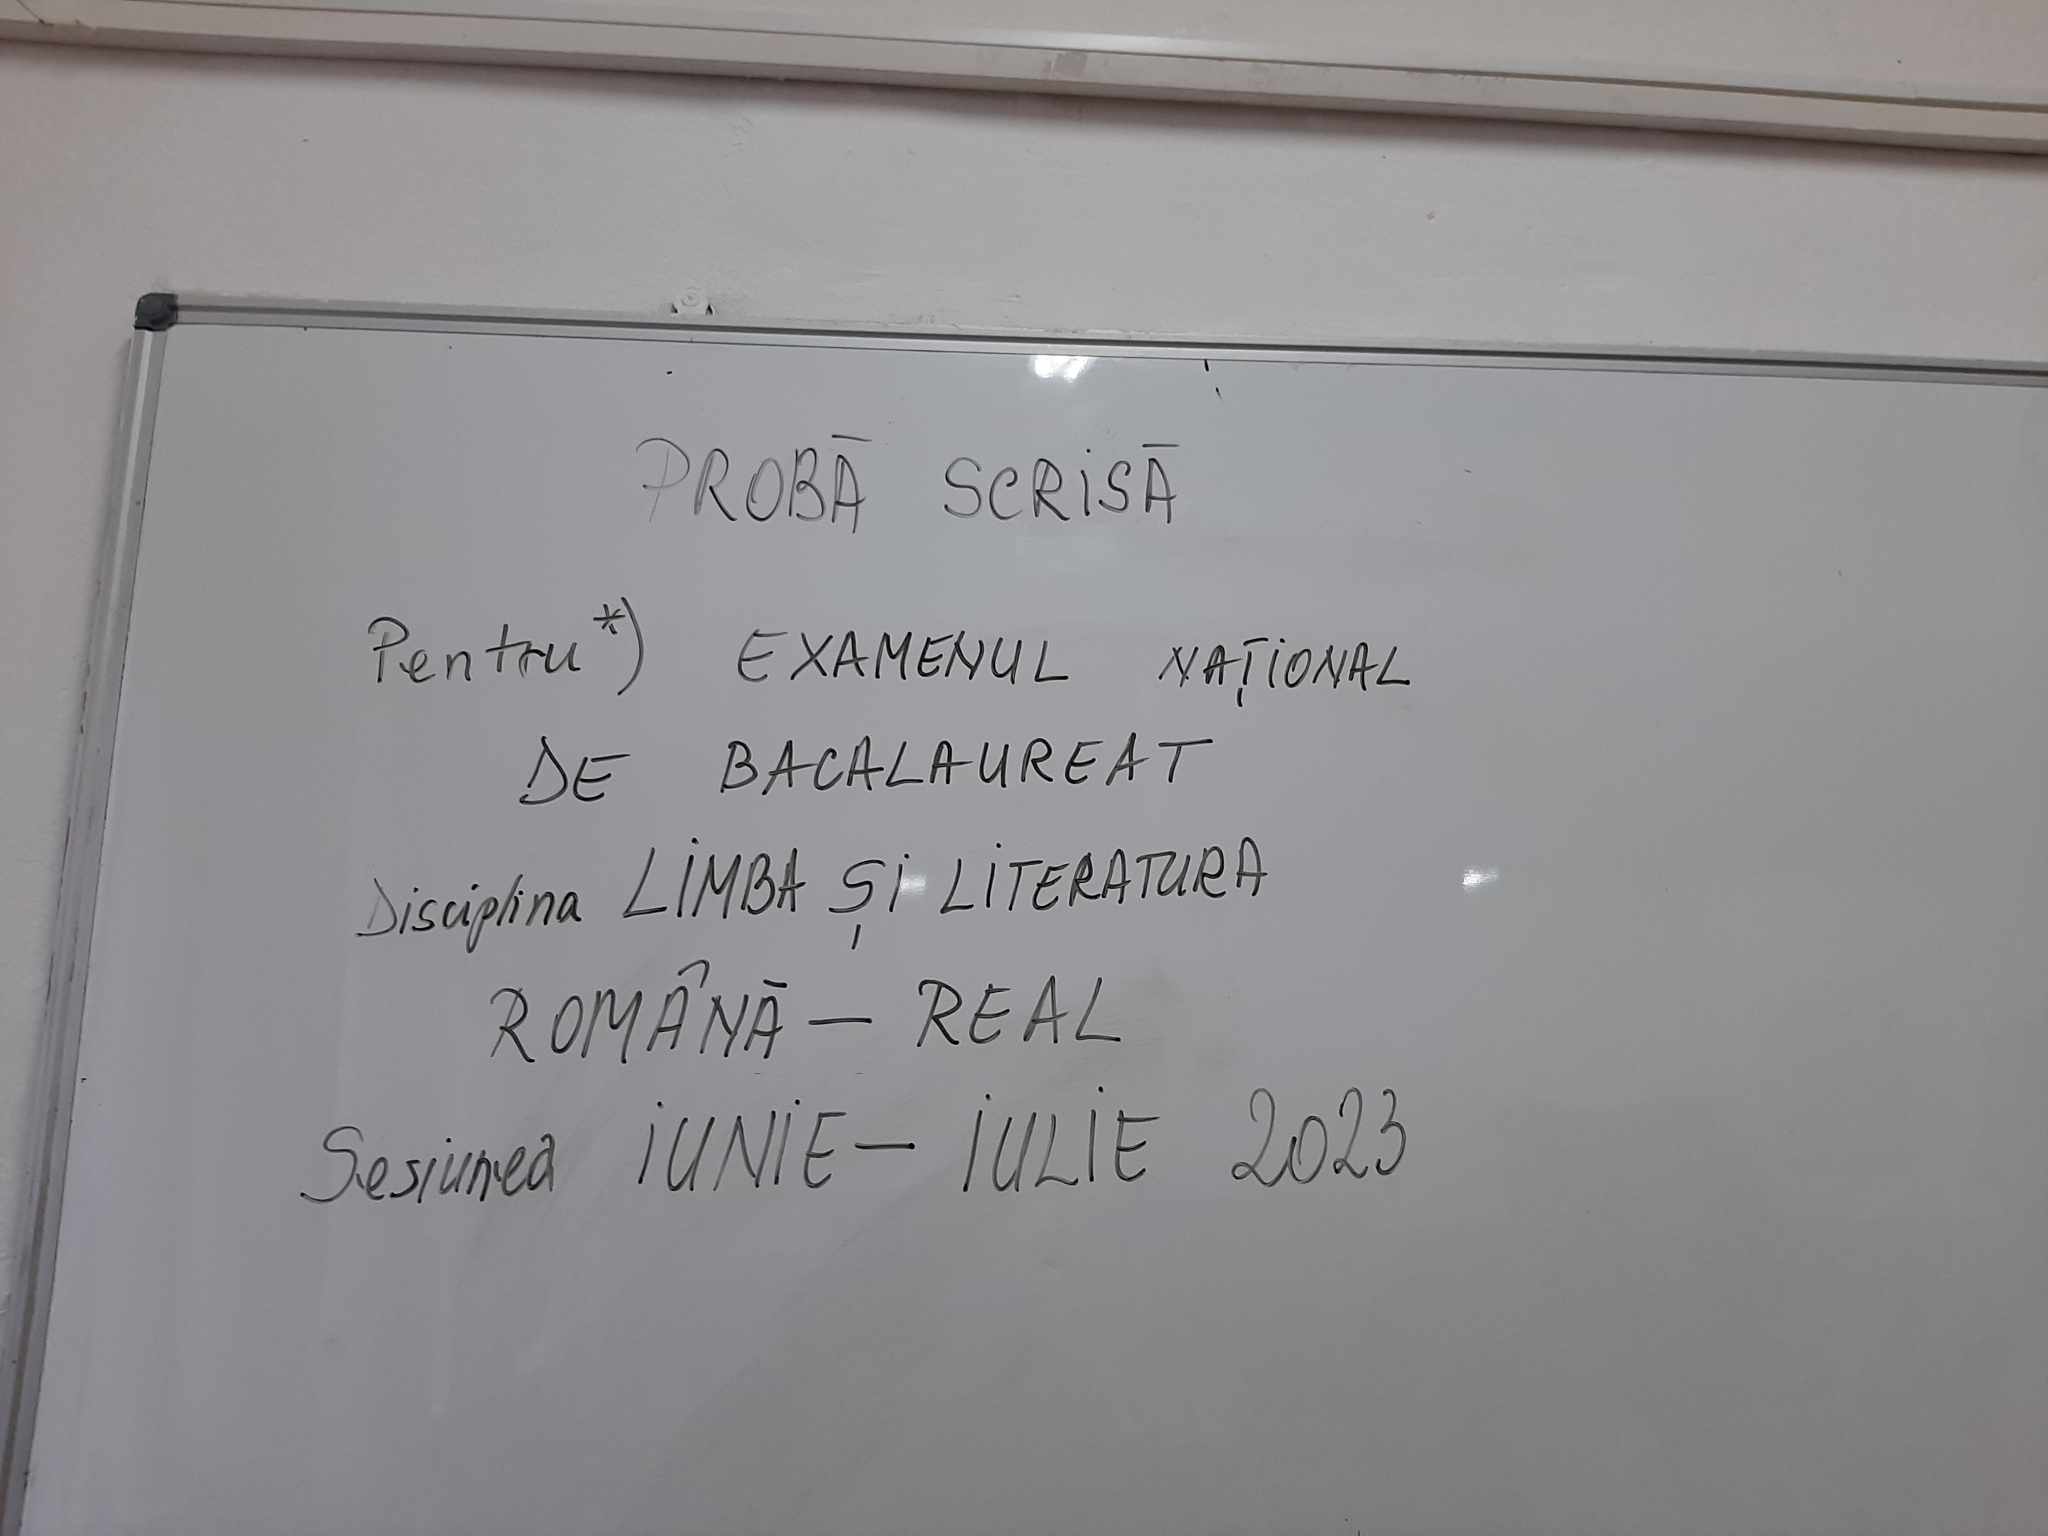 PROBĂ SCRISĂ
Pentru*) EXAMENUL NAȚIONAL
DE BACALAUREAT
Disciplina LIMBA ȘI LITERATURA
ROMÂNĂ — REAL
Sesiunea IUNIE — IULIE 2023